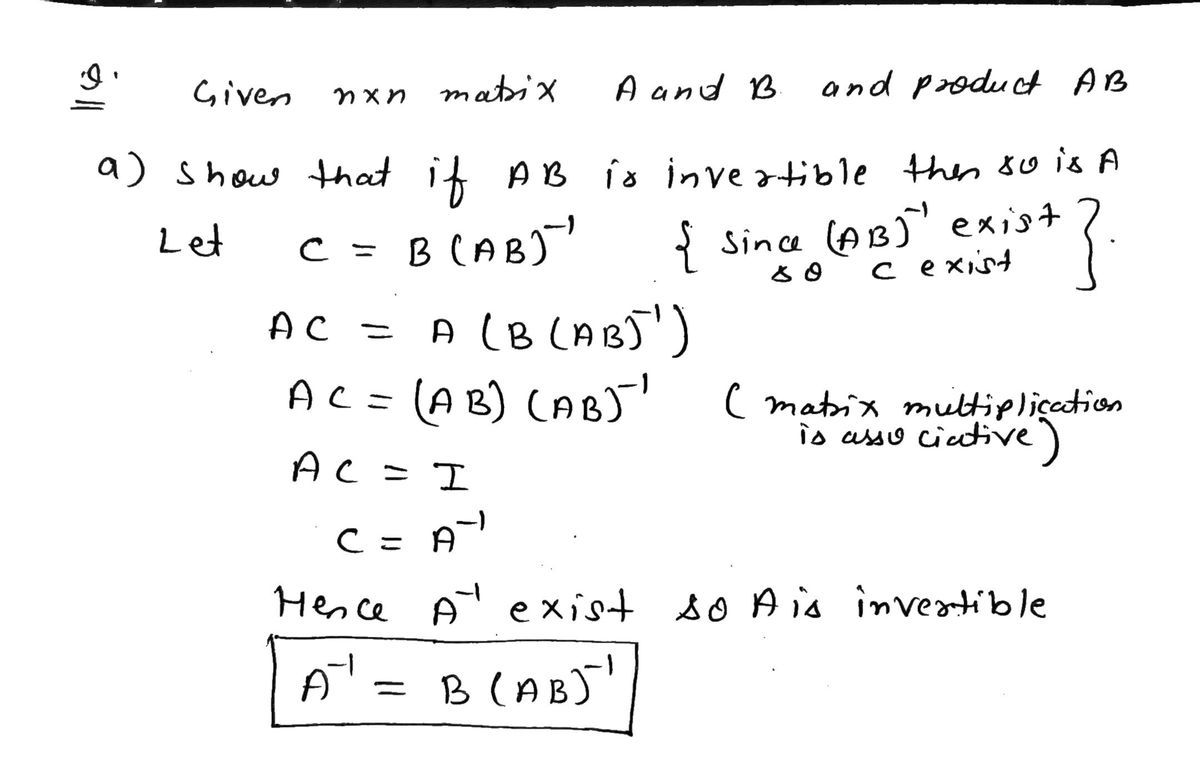 9.
Given n×n matrix A and B and product AB
a) show that if AB is invertible then so is A
Let C = B(AB)⁻¹ { since (AB)⁻¹ exist
so C exist }.
AC = A(B(AB)⁻¹)
AC = (AB)(AB)⁻¹ ( matrix multiplication
is associative)
AC = I
C = A⁻¹
Hence A⁻¹ exist so A is invertible
A⁻¹ = B(AB)⁻¹